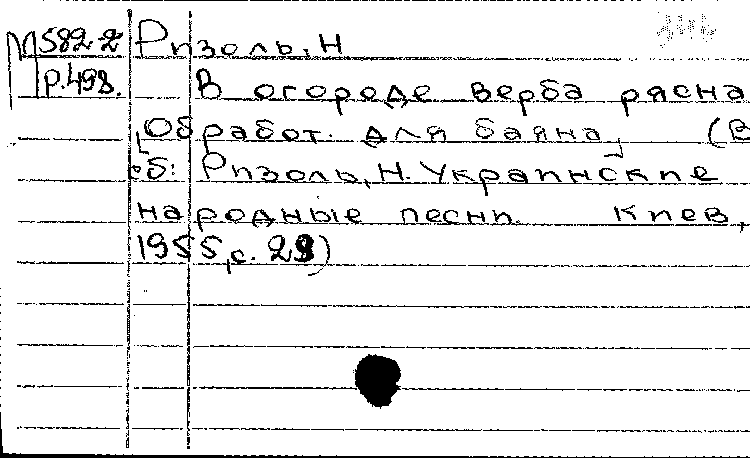 М582-2 Ризоль, Н
Р.498. В огороде верба рясна
[Обработ. для баяна] (В
сб: Ризоль, Н. Украинские
народные песни. Киев,
1955, с. 29)